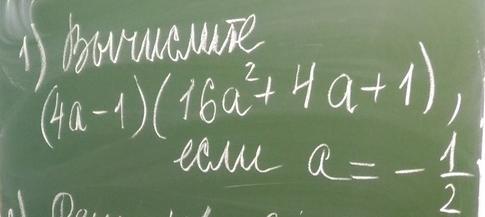 1) Вычислите
(4a-1)(16a²+4a+1),
если a = -1/2